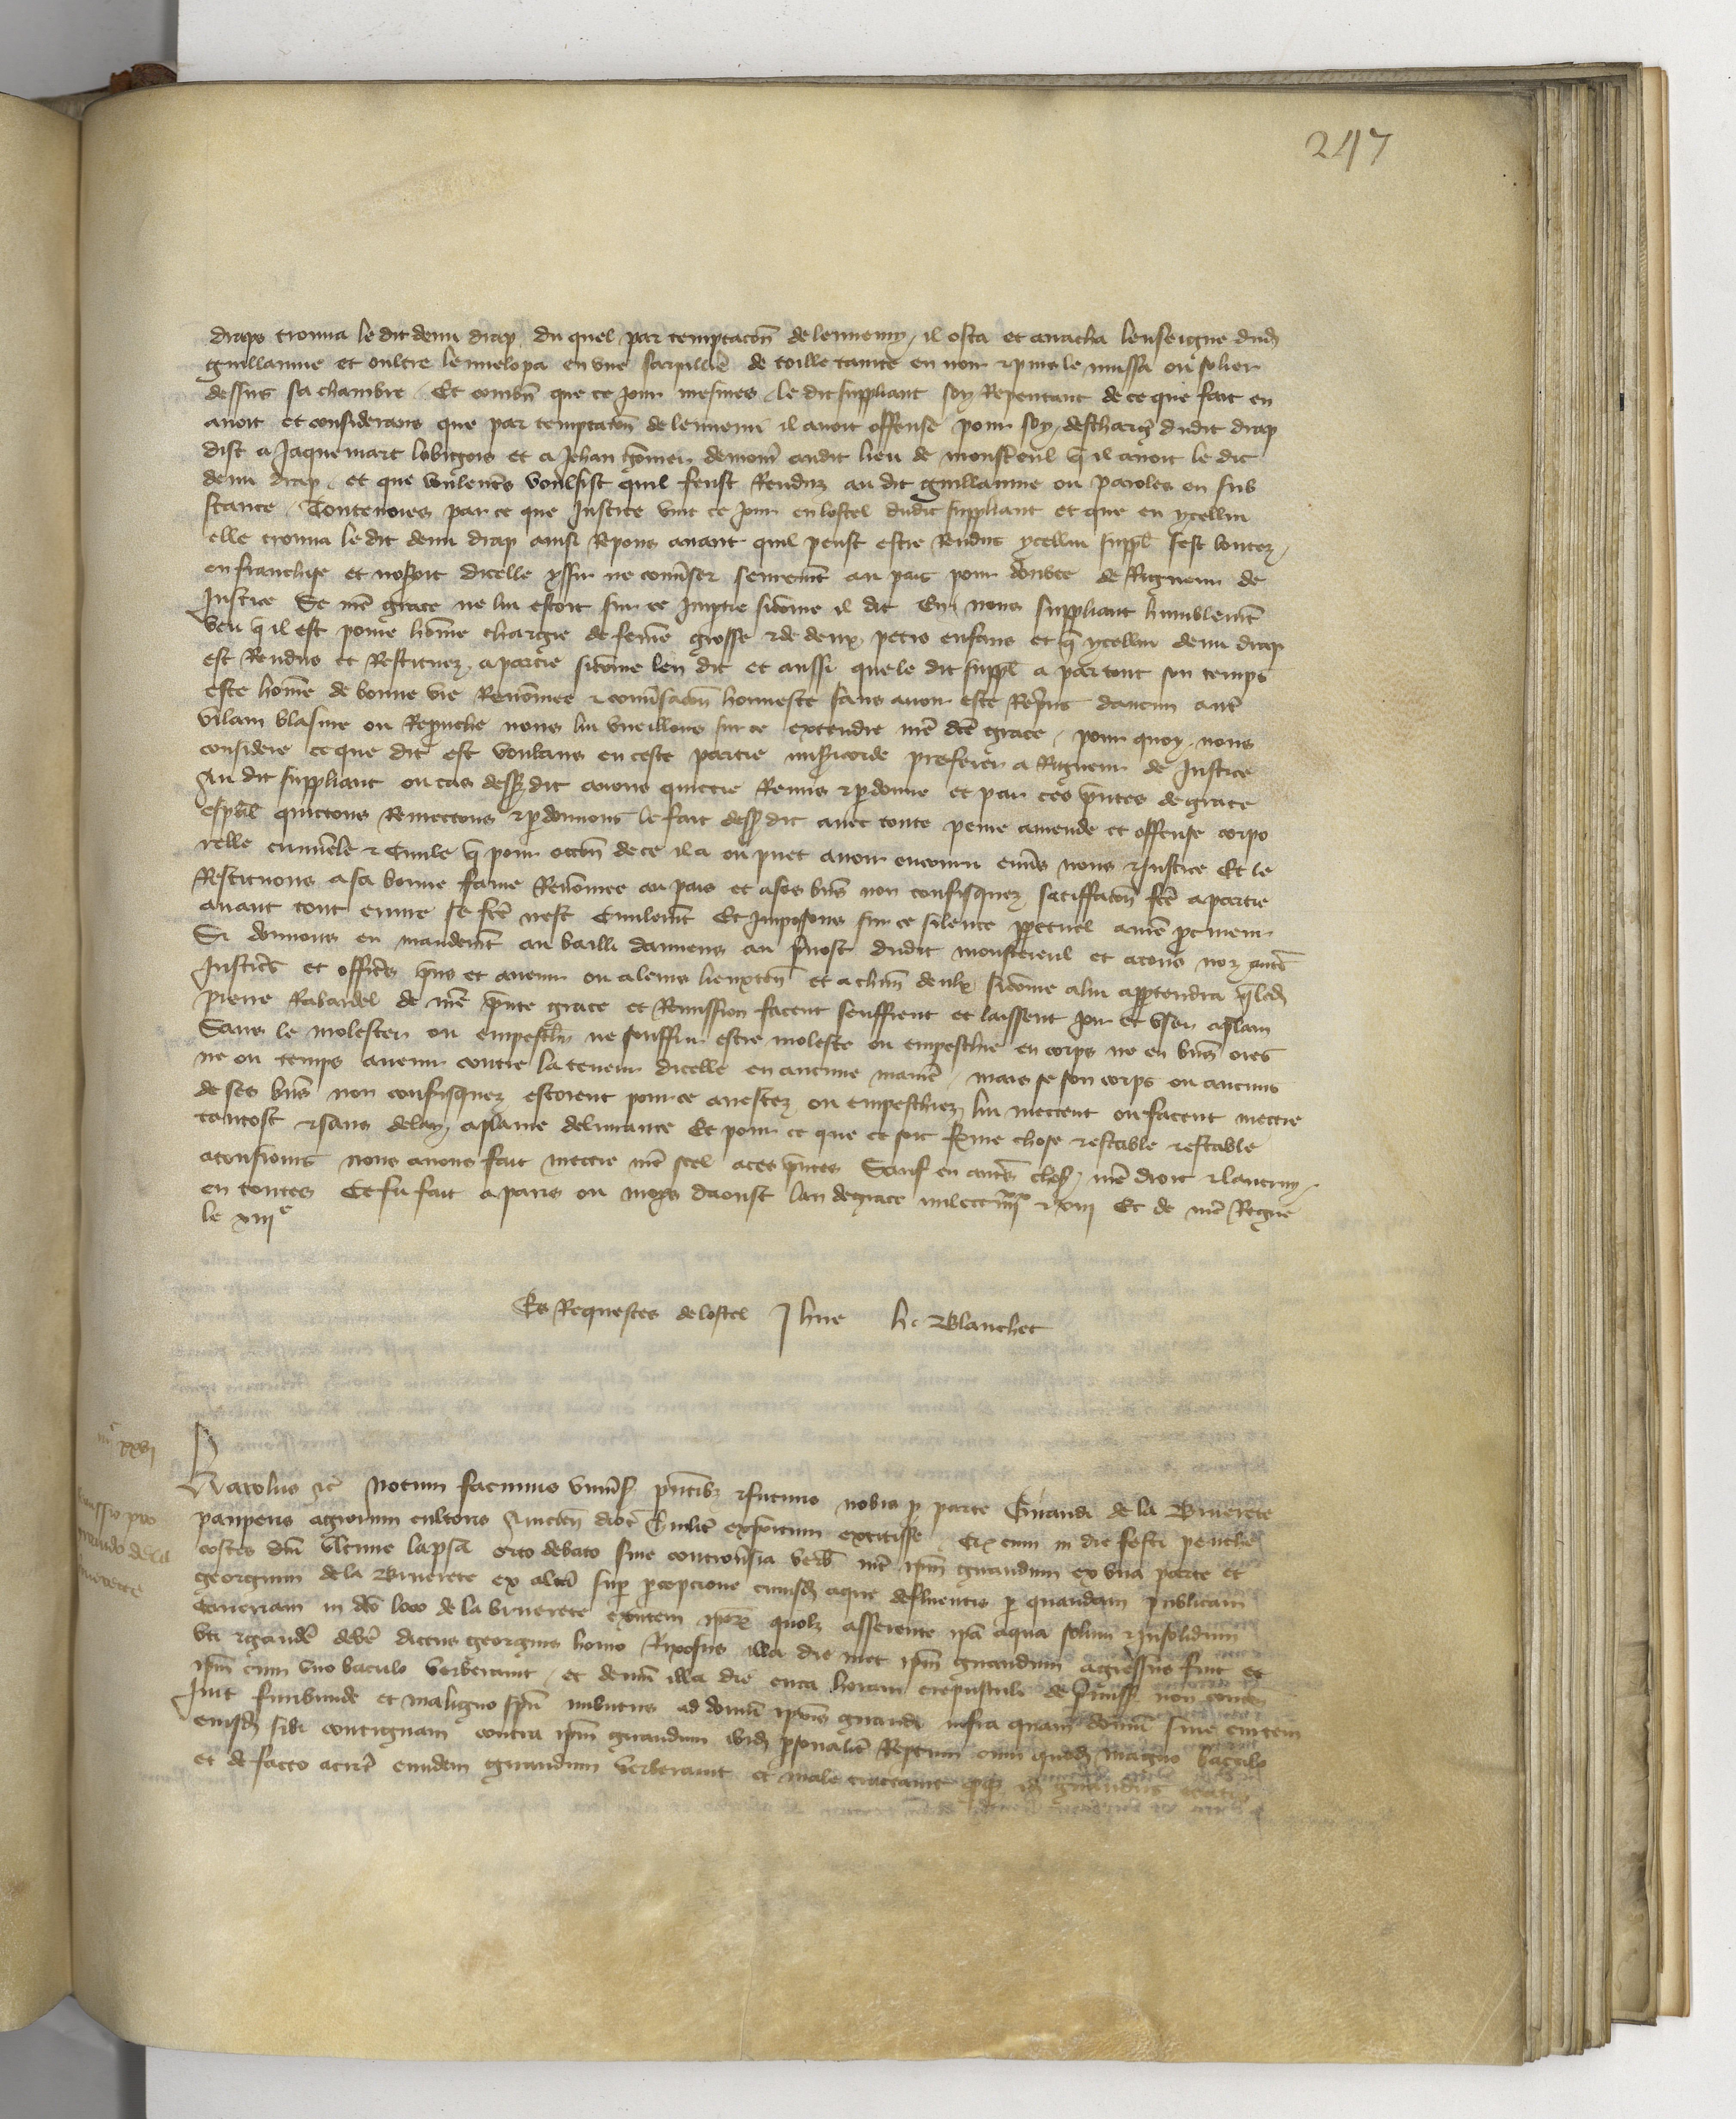 247
draps trouva le dit demi drap du quel par temptacōn de lennemy / il osta et arracha lenseigne dud
guillaume et oultre lenvelopa en une sarpilliē de toille tainte en noir & puis le mussa ou solier
dessus sa chambre / Et combn que ce jour mesmes le dit suppliant soy repentant de ce que fait en
avoit et considerans que par temptacōn de lennemi il avoit offensé pour soy descharg̃ dudit drap
dist a Jaquemart et a Jehan demour̄ audit lieu de monstereul q̄ il avoit le dit
demi drap et que voulent̄s voulsist quil feust renduz au dit guillaume ou paroles en sub
stance / Toutevoies par ce que Justice vint ce jour en lostel dudit suppliant et que en ycellui
elle trouva le dit demi drap ainsi repons avant quil peust estre rendus ycellui suppl̄ sest boutez /
en franchise et nosoit dicelle yssir ne conv̄ser seurem̄t au pais pour doubte de rigueur de
Justice Se nrē grace ne lui estoit sur ce Impartie sicom̄e il dit En nous suppliant humblem̄t
veu q̄ il est povre hom̄e chargie de fem̄e grosse & de deux petis enfans et q̄ ycellui demi drap
est rendus et restituez a partie sicom̄e len dit et aussi que le dit suppl̄ a par tout son temps
este hom̄e de bonne vie renom̄ee & conv̄sacōn honneste sans avoir este rep̄ns daucun aut̄
vilain blasme ou reprouche nous lui vueillons sur ce extendre nrē dcē grace / pour quoy nous
considere ce que dit est voulans en ceste partie mis̄icorde preferer a rigueur de Justice
Au dit suppliant ou cas dess̄ dit avons quittie remis & p̄donne et par ces p̄ntes de grace
esp̄al quittons remettons & p̄donnons le fait dess̄ dit avec toute peine amende et offense corpo
relle crimin̄ele & Civile q̄ pour occōn de ce il a ou puet avoir encouru env̄s nous & Justice Et le
Restituons a sa bonne fame renom̄ee au pais et a ses biēs non confisquez satiffacōn fcē a partie
avant tout euvre se fcē nest Civilem̄t Et Imposons sur ce silence p̄petuel a nrē p̄cureur
Si donnons en mandem̄t au bailli damiens au p̄vost dudit monstereul et a tous noz autr̄s
Justic̄s et offic̄s p̄ns et avenir ou a leurs lieuxten̄ et a ch̄un deulx sicom̄e a lui app̄tendra q̄ led
pierre Rabardel de nrē p̄nte grace et remission facent seuffrent et laissent joir et user a plain
Sans le molester ou empeschier ne souffrir estre moleste ou empeschie en corps ne en biēs ores
ne ou temps avenir contre la teneur dicelle en aucune maniē / mais se son corps ou aucuns
de ses biēs non confisquez estoient pour ce arrestez ou empeschiez lui mettent ou facent mettre
tantost & sans delay a plaine delivrance Et pour ce que ce soit ferme chose & estable & estable
a tousiours nous avons fait mettre nrē seel a ces p̄ntes Sauf en autr̄s choses nrē droit & lautruy /
en toutes Ce fu fait a paris ou moys daoust lan de grace mil ccc iiiixx & xiii Et de nrē Regne
le xiiie
Es Requestes de lostel J hue h. Blanchet
iiic xxvii
Karolus &c̄ Notum facimus univ̄s p̄ntib̄ & futuris nobis p̄ parte Guardi de la Bruerete
pauperis agrorum cultoris dioc̄ humilit̄ expositum extitisse Cum in die festi penthe
costes dnī ultime lapsā orto debato sive controv̄sia verb̄ int̄ ip̄m guardum ex una parte et
georgium de la Bruerete ex altā sup̄ p̄cepcione cuiusd aque defluentis p̄ quandam publicam
in dcō loco de la bruerete ip̄oꝝ quolz asserente ip̄ā aquā solum & insolidum
uti & gaudē debē dictus georgius homo rixosus illa die met ip̄m guardum agressus fuit et
ip̄m cum uno baculo verberavit / et demū illa die circa horam crepusculi de p̄miss̄ non conten
Ivit furibunde et maligno sp̄u imbutus ad domū ip̄ius guardi infra quam domū sive
eiusd sibi contiguam contra ip̄m guardum ibid p̄sonalit̄ repertum cum quod magno baculo
et de facto acrit̄ eundem guardum verberavit et male tractavit id guardus
remissio pro
guardo de la
bruerete